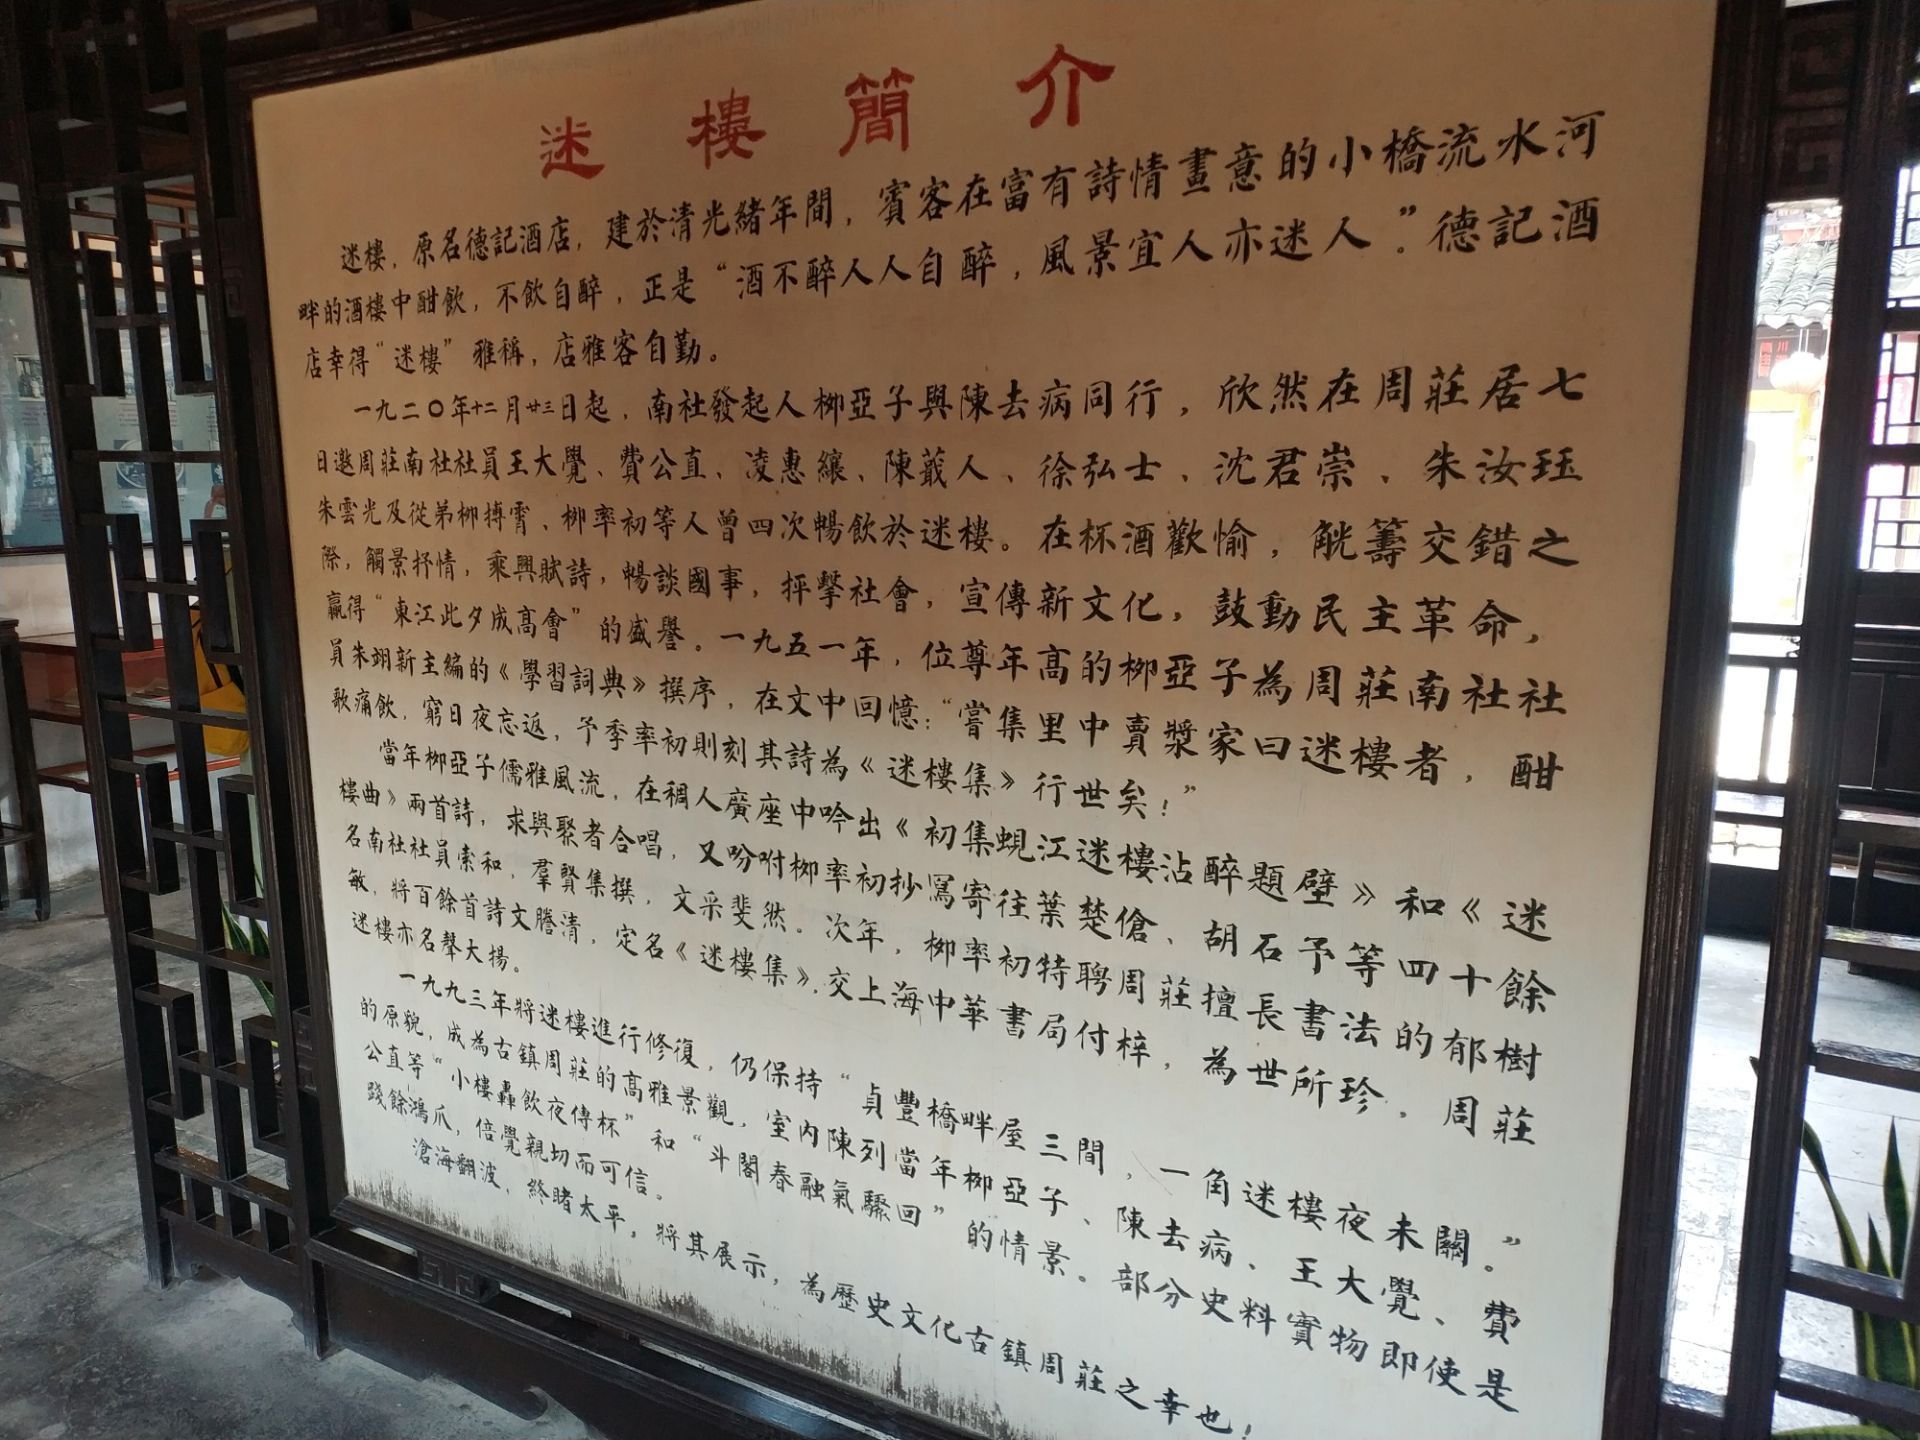 迷樓簡介
迷樓，原名德記酒店，建於清光緒年間，賓客在富有詩情畫意的小橋流水河
畔的酒樓中酣飲，不飲自醉，正是“酒不醉人人自醉，風景宜人亦迷人”。德記酒
店幸得“迷樓”雅稱，店雅客自勤。
一九二〇年十二月廿三日起，南社發起人柳亞子與陳去病同行，欣然在周莊居七
日邀周莊南社社員王大覺、費公直、凌惠纕、陳蕺人、徐弘士、沈君崇、朱汝珏
朱雲光及從弟柳摶霄、柳率初等人曾四次暢飲於迷樓。在杯酒歡愉，觥籌交錯之
際，觸景抒情，乘興賦詩，暢談國事，抨擊社會，宣傳新文化，鼓動民主革命，
贏得“東江此夕成高會”的盛譽。一九五一年，位尊年高的柳亞子為周莊南社社
員朱翊新主編的《學習詞典》撰序，在文中回憶：“嘗集里中賣漿家曰迷樓者，酣
歌痛飲，窮日夜忘返，予季率初則刻其詩為《迷樓集》行世矣！”
當年柳亞子儒雅風流，在稠人廣座中吟出《初集蜆江迷樓沾醉題壁》和《迷
樓曲》兩首詩，求與聚者合唱，又吩咐柳率初抄寫寄往葉楚傖、胡石予等四十餘
名南社社員索和，羣賢集撰，文采斐然。次年，柳率初特聘周莊擅長書法的郁樹
敏，將百餘首詩文謄清，定名《迷樓集》，交上海中華書局付梓，為世所珍，周莊
迷樓亦名聲大揚。
一九九三年將迷樓進行修復，仍保持“貞豐橋畔屋三間，一角迷樓夜未關。”
的原貌，成為古鎮周莊的高雅景觀，室內陳列當年柳亞子、陳去病、王大覺、費
公直等“小樓轟飲夜傳杯”和“斗閣春融氣驟回”的情景。部分史料實物即使是
踐餘鴻爪，倍覺親切而可信。
滄海翻波，終睹太平，將其展示，為歷史文化古鎮周莊之幸也！